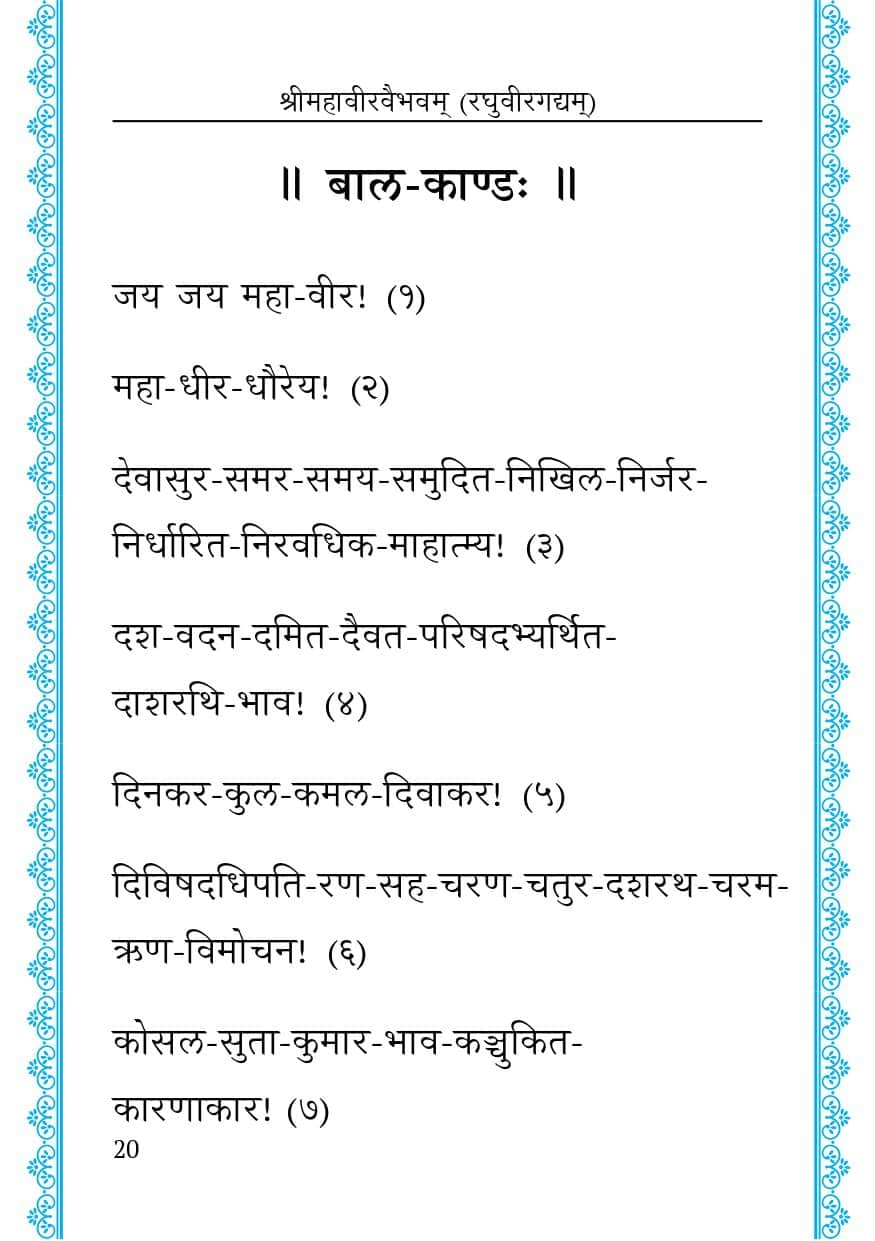 श्रीमहावीरवैभवम् (रघुवीरगद्यम्)
॥ बाल-काण्डः ॥
जय जय महा-वीर! (१)
महा-धीर-धौरेय! (२)
देवासुर-समर-समय-समुदित-निखिल-निर्जर-
निर्धारित-निरवधिक-माहात्म्य! (३)
दश-वदन-दमित-दैवत-परिषदभ्यर्थित-
दाशरथि-भाव! (४)
दिनकर-कुल-कमल-दिवाकर! (५)
दिविषदधिपति-रण-सह-चरण-चतुर-दशरथ-चरम-
ऋण-विमोचन! (६)
कोसल-सुता-कुमार-भाव-कञ्चुकित-
कारणाकार! (७)
20